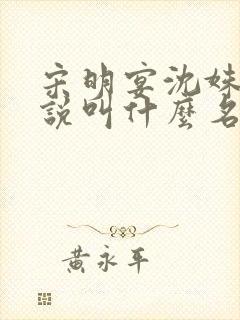 宋明宴沈妹
說叫什麼名
黃永平